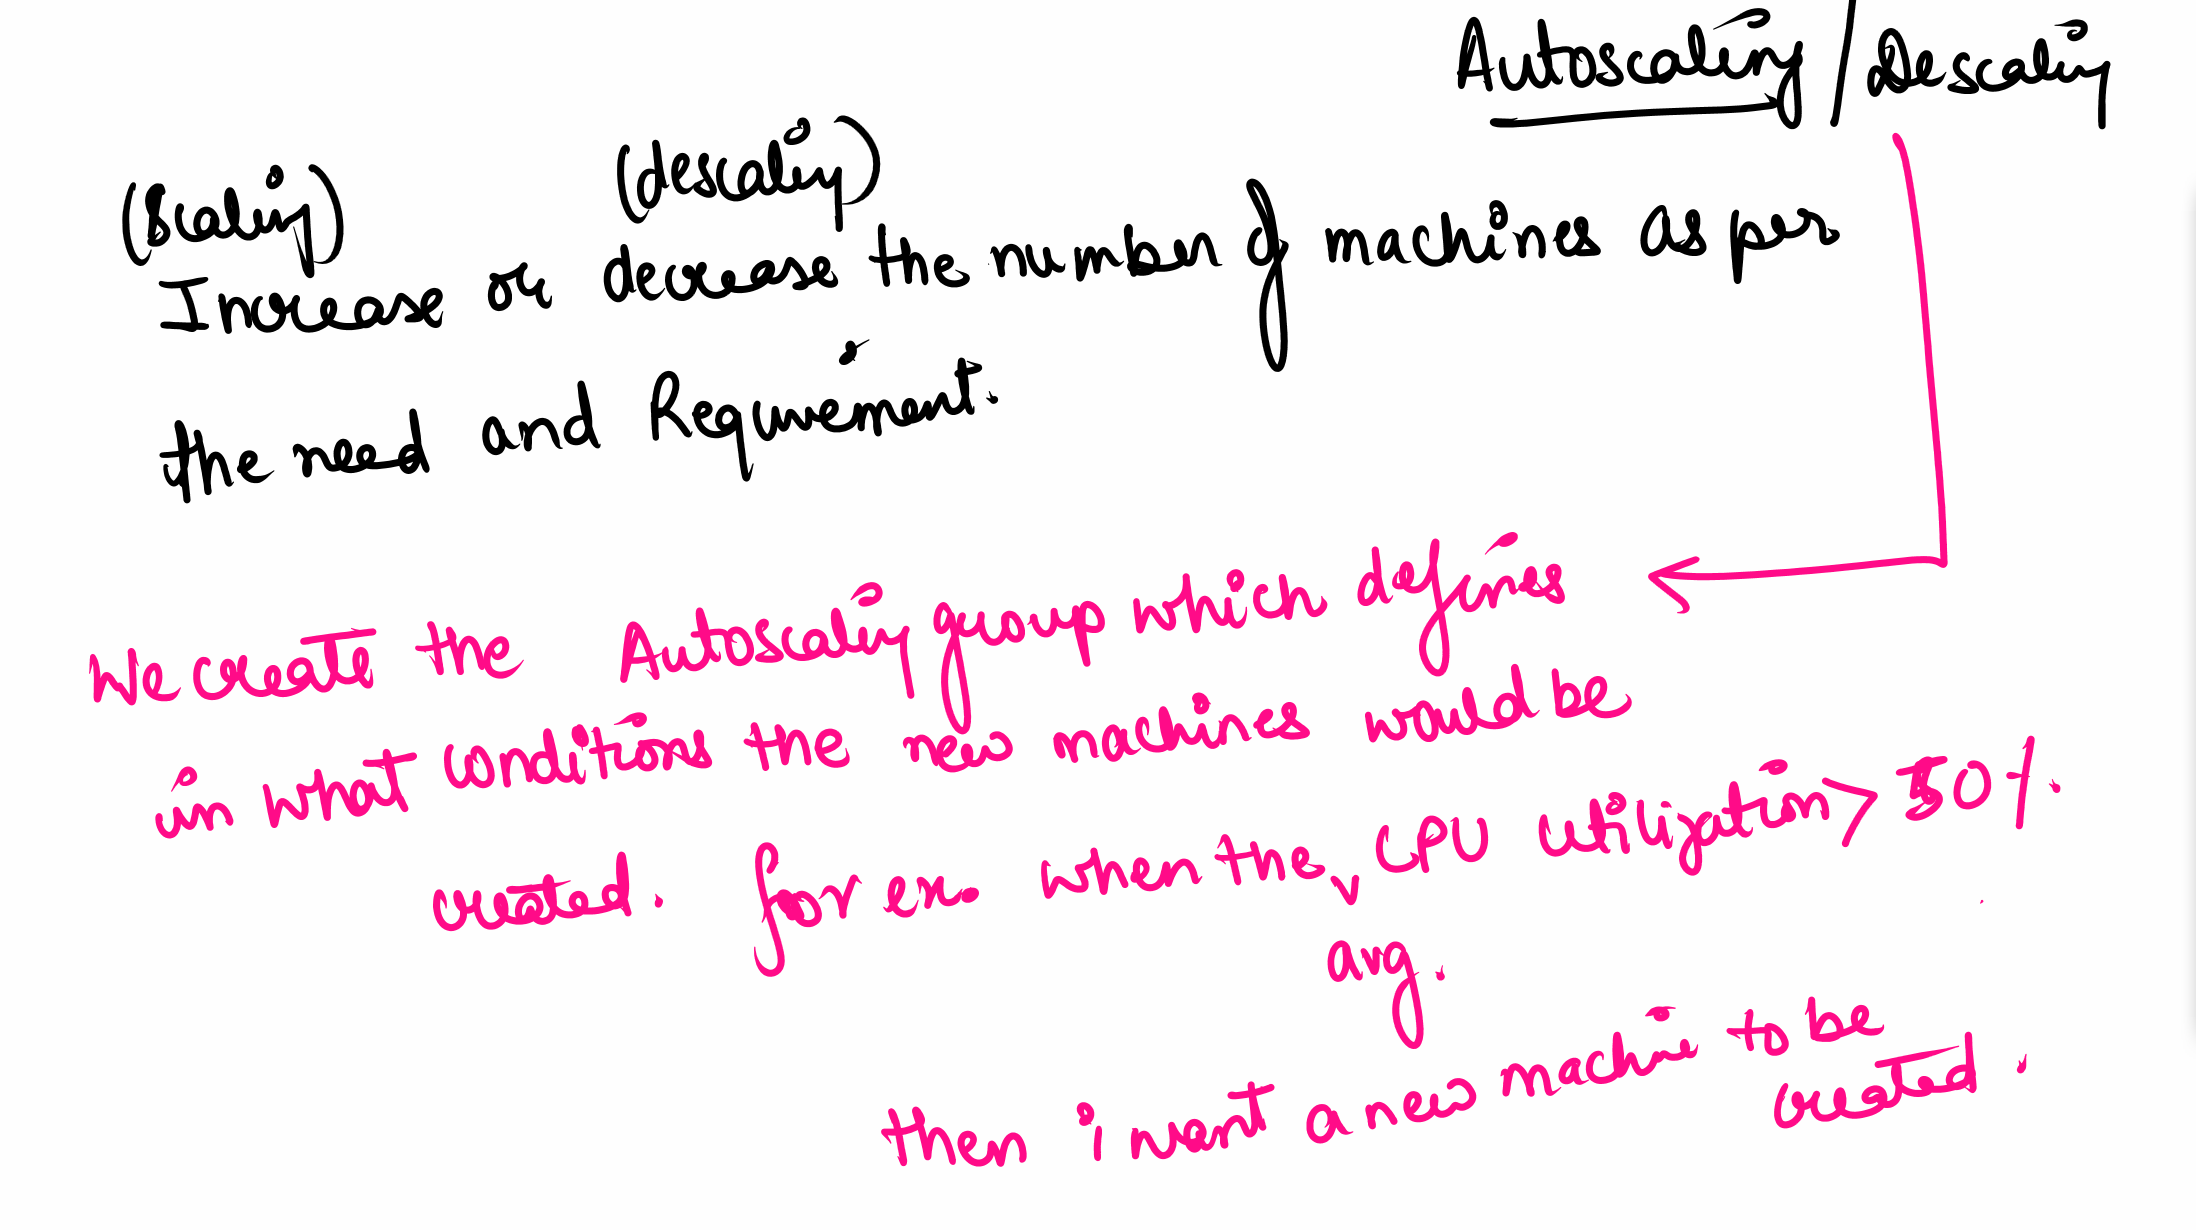 Autoscaling / Descaling
(Scaling) (descaling)
Increase or decrease the number of machines as per
the need and Requirement.
We create the Autoscaling group which defines
in what conditions the new machines would be
created. for ex. when the CPU utilization > 50%.
avg.
then i want a new machine to be
created.